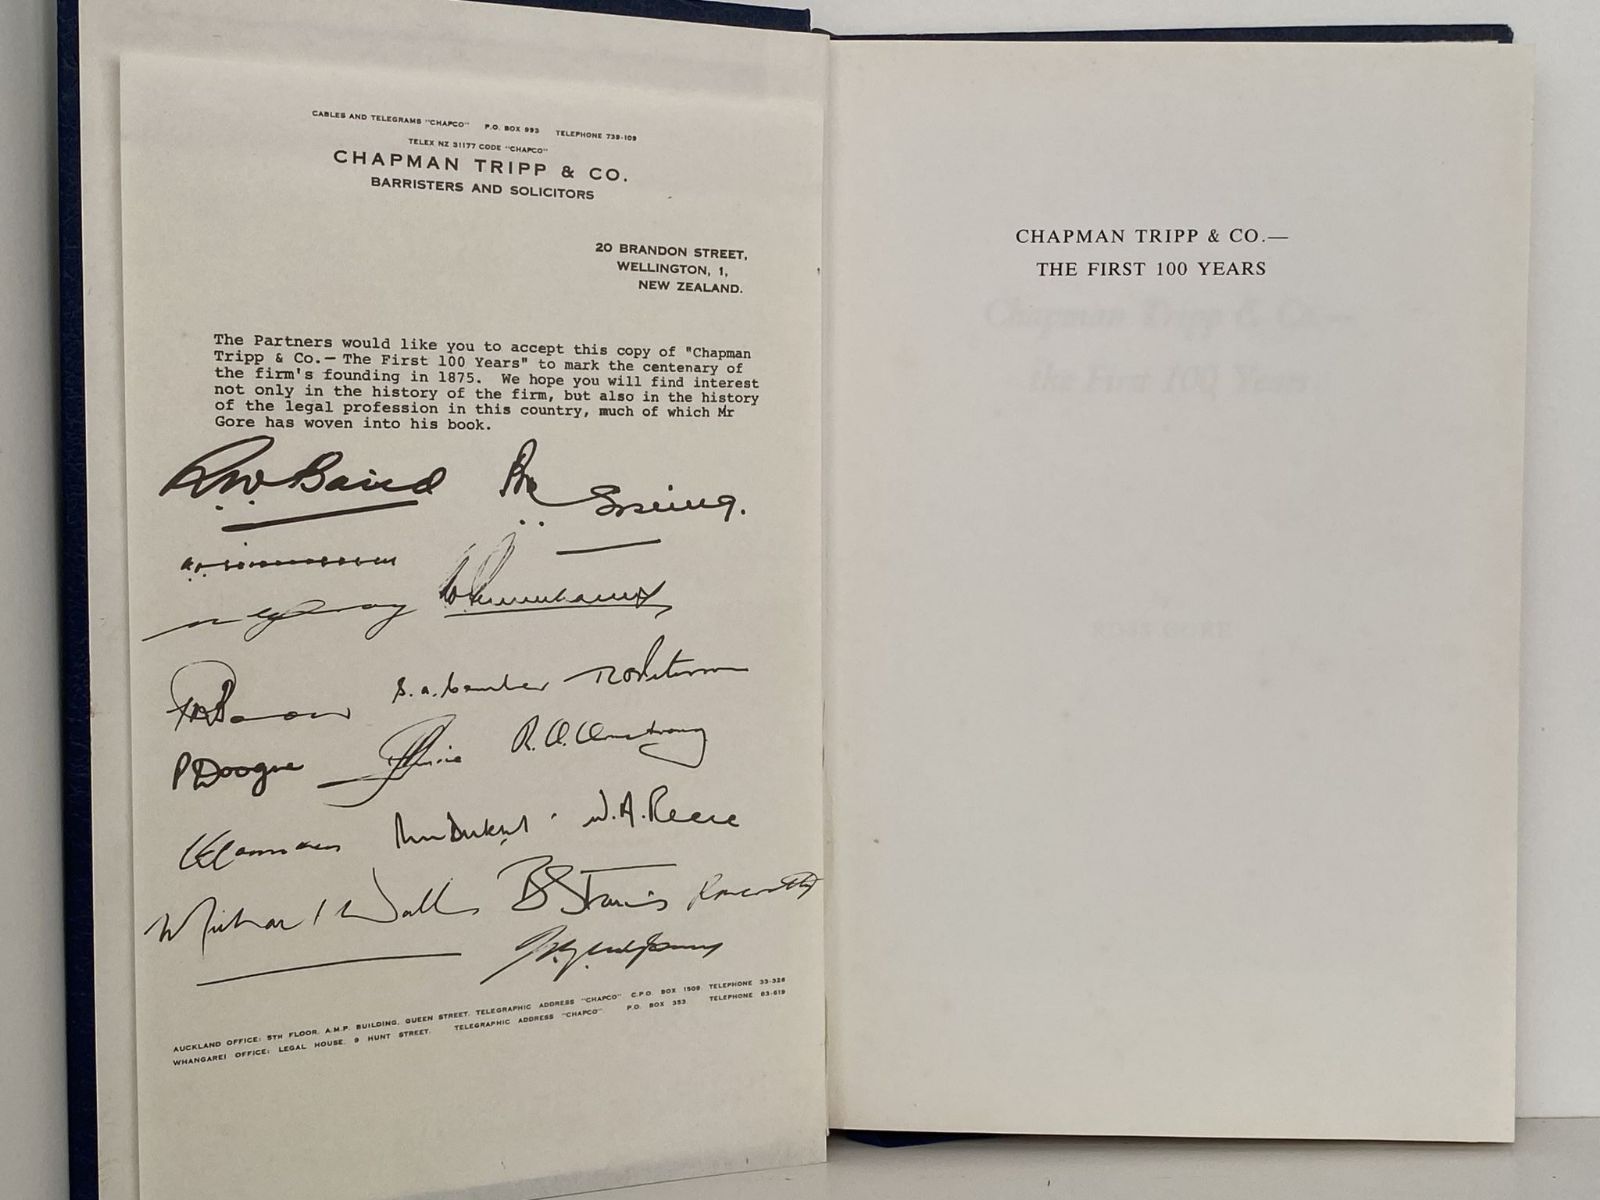 CABLES AND TELEGRAMS "CHAPCO" P.O. BOX 993 TELEPHONE 739-109
TELEX NZ 31177 CODE "CHAPCO"
CHAPMAN TRIPP & CO.
BARRISTERS AND SOLICITORS
20 BRANDON STREET,
WELLINGTON, 1,
NEW ZEALAND.
The Partners would like you to accept this copy of "Chapman
Tripp & Co.— The First 100 Years" to mark the centenary of
the firm's founding in 1875. We hope you will find interest
not only in the history of the firm, but also in the history
of the legal profession in this country, much of which Mr
Gore has woven into his book.
RW Baird
P Doogue
R.A. Armstrong
W.A. Reece
AUCKLAND OFFICE: 5TH FLOOR, A.M.P. BUILDING, QUEEN STREET. TELEGRAPHIC ADDRESS "CHAPCO" C.P.O. BOX 1509. TELEPHONE 33-326
WHANGAREI OFFICE: LEGAL HOUSE, 9 HUNT STREET. TELEGRAPHIC ADDRESS "CHAPCO" P.O. BOX 353 TELEPHONE 83-619
CHAPMAN TRIPP & CO.—
THE FIRST 100 YEARS
Chapman Tripp & Co.—
the First 100 Years
ROSS GORE